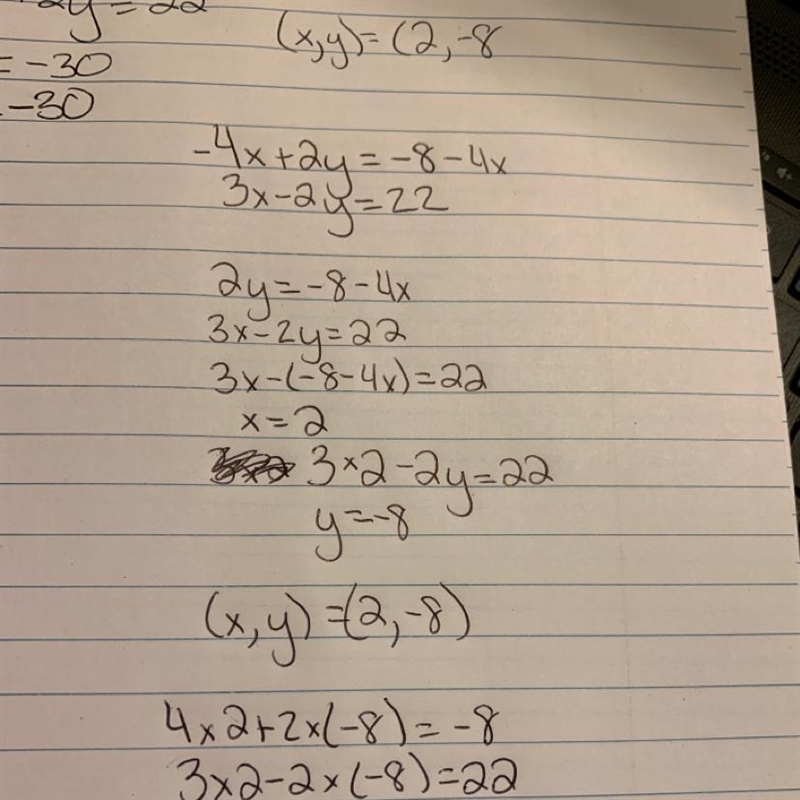 +2y=22
(x,y)=(2,-8
=-30
-30
-4x+2y=-8-4x
3x-2y=22
2y=-8-4x
3x-2y=22
3x-(-8-4x)=22
x=2
3×2-2y=22
y=-8
(x,y)=(2,-8)
4×2+2×(-8)=-8
3×2-2×(-8)=22